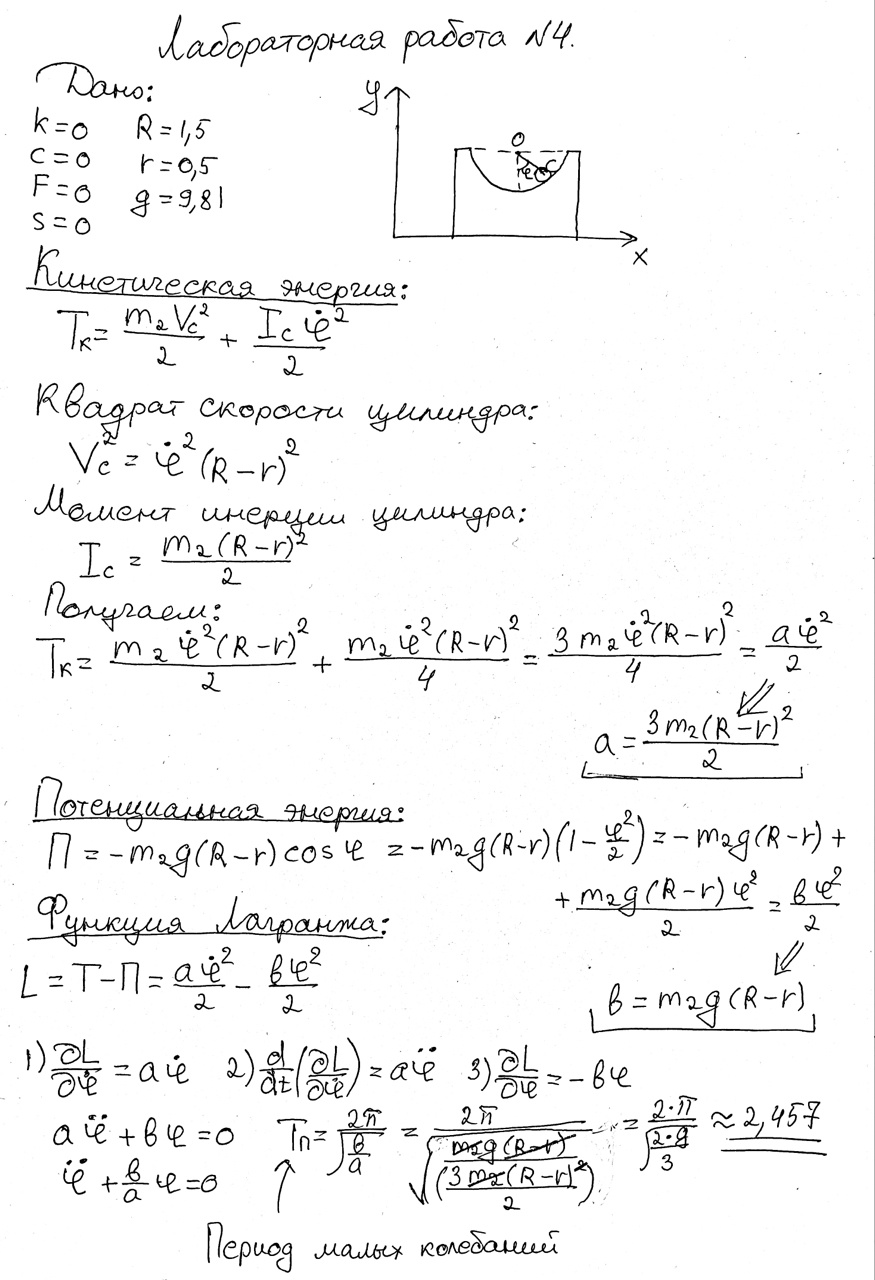 Лабораторная работа №4.
Дано:
k=0 R=1,5
c=0 r=0,5
F=0 g=9,81
s=0
y
O
φ C
x
Кинетическая энергия:
Tк= m₂Vc²/2 + Ic φ̇²/2
Квадрат скорости цилиндра:
Vc² = φ̇²(R-r)²
Момент инерции цилиндра:
Ic = m₂(R-r)²/2
Получаем:
Tк= m₂φ̇²(R-r)²/2 + m₂φ̇²(R-r)²/4 = 3m₂φ̇²(R-r)²/4 = aφ̇²/2
a = 3m₂(R-r)²/2
Потенциальная энергия:
П = -m₂g(R-r)cosφ = -m₂g(R-r)(1-φ²/2) = -m₂g(R-r) +
+ m₂g(R-r)φ²/2 = вφ²/2
Функция Лагранта:
L = T-П = aφ̇²/2 - вφ²/2
в = m₂g(R-r)
1) ∂L/∂φ̇ = aφ̇ 2) d/dt(∂L/∂φ̇) = aφ̈ 3) ∂L/∂φ = -вφ
aφ̈ + вφ = 0 Tп = 2π/√(в/a) = 2π/√(m₂g(R-r)/(3m₂(R-r)²/2)) = 2·π/√(2·g/3) ≈ 2,457
φ̈ + в/a φ = 0
Период малых колебаний